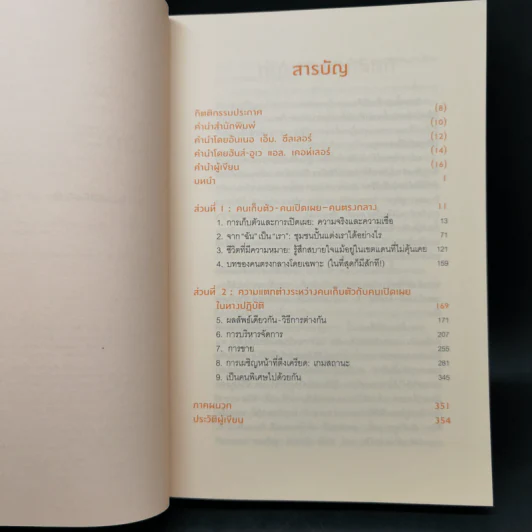 สารบัญ
กิตติกรรมประกาศ (8)
คำนำสำนักพิมพ์ (10)
คำนำโดยอันเนอ เอ็ม. ชึลเลอร์ (12)
คำนำโดยฮันส์-อูเว แอล. เคอห์เลอร์ (14)
คำนำผู้เขียน (16)
บทนำ 1
ส่วนที่ 1 : คนเก็บตัว-คนเปิดเผย-คนตรงกลาง 11
1. การเก็บตัวและการเปิดเผย: ความจริงและความเชื่อ 13
2. จาก “ฉัน” เป็น “เรา”: ชุมชนปั้นแต่งเราได้อย่างไร 71
3. ชีวิตที่มีความหมาย: รู้สึกสบายใจแม้อยู่ในเขตแดนที่ไม่คุ้นเคย 121
4. บทของคนตรงกลางโดยเฉพาะ (ในที่สุดก็มีสักที!) 159
ส่วนที่ 2 : ความแตกต่างระหว่างคนเก็บตัวกับคนเปิดเผย
ในทางปฏิบัติ 169
5. ผลลัพธ์เดียวกัน-วิธีการต่างกัน 171
6. การบริหารจัดการ 207
7. การขาย 255
8. การเผชิญหน้าที่ตึงเครียด: เกมสถานะ 281
9. เป็นคนพิเศษไปด้วยกัน 345
ภาคผนวก 351
ประวัติผู้เขียน 354